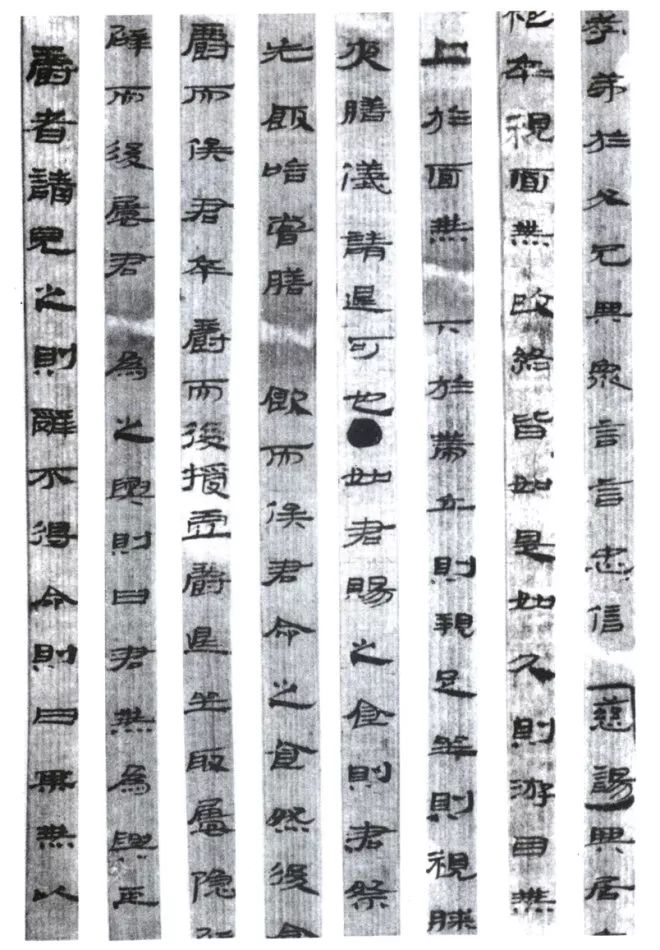 孝弟於父兄與眾言言忠信慈諹與居
卒視面無改終皆如是如父則游目無
上於面無下於帶立則視足坐則視膝
夜膳請退可也●如君賜之食則君祭
先飯咕嘗膳飲而侯君命之食然後食
爵而侯君卒爵而後授虛爵退坐取屨隱
辟而後屨君為之興則曰君無為興臣
爵者請見之則辭不得命則曰某無以